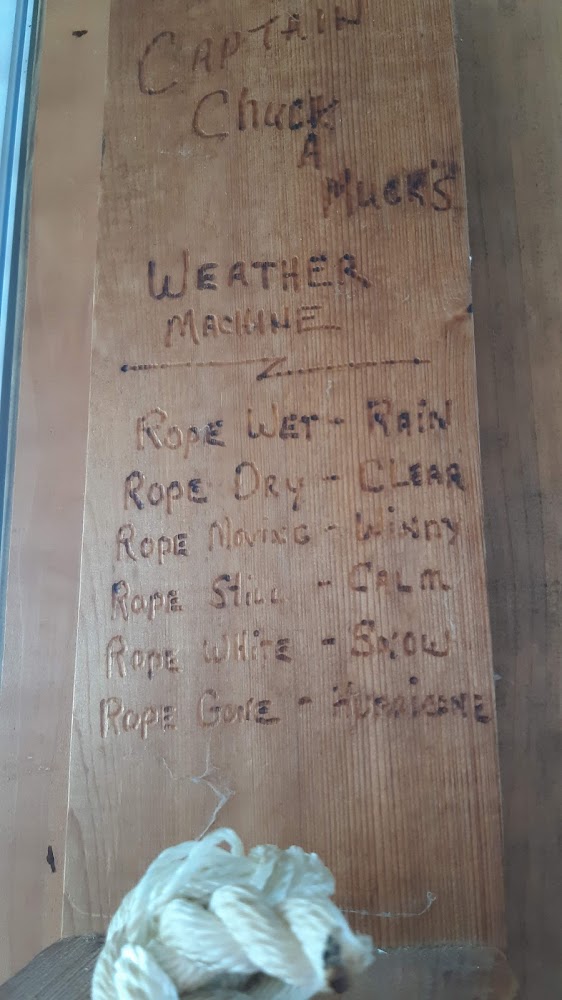 CAPTAIN
Chuck
A
Muck's
WEATHER
MACHINE
ROPE WET - RAIN
ROPE DRY - CLEAR
ROPE MOVING - WINDY
ROPE STILL - CALM
ROPE WHITE - SNOW
ROPE GONE - HURRICANE